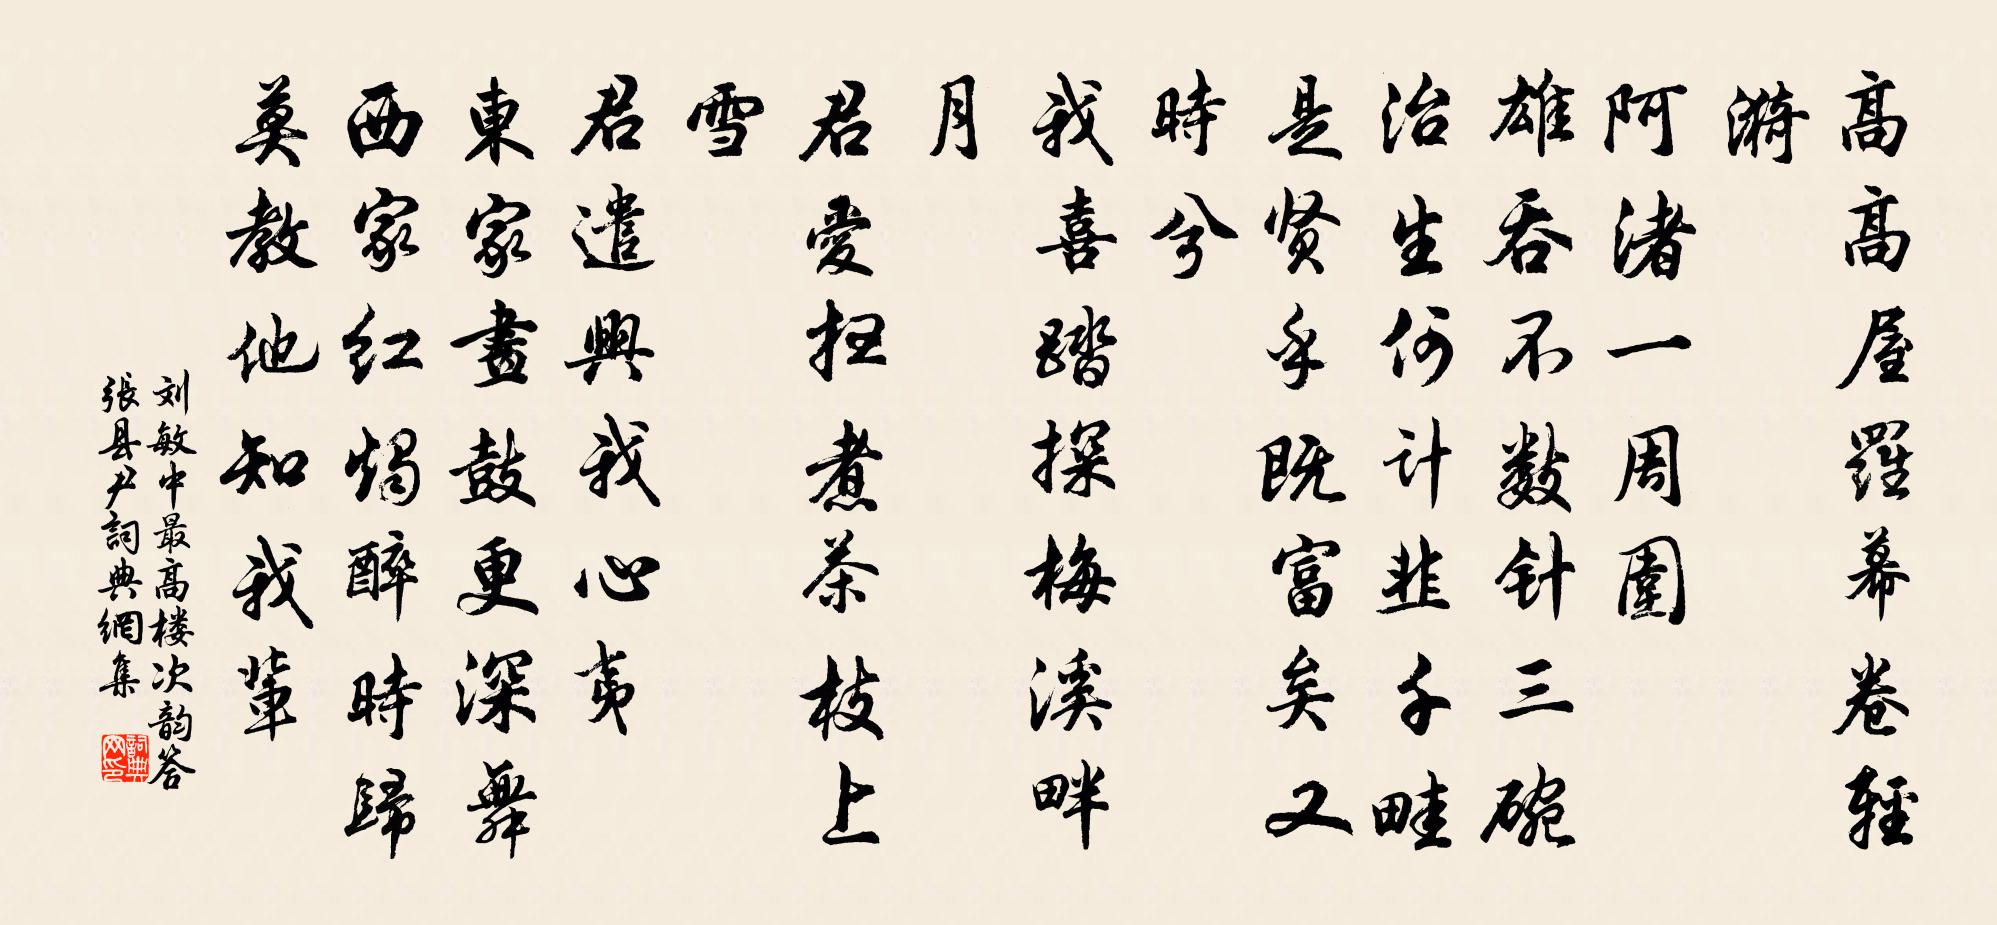 高高屋羅幕卷輕
漪
阿渚一周圍
雄吞不数针三碗
治生何计韭千畦
是贤乎既富矣又
時兮
我喜踏探梅溪畔
月
君愛扭煮茶枝上
雪
君遣興我心夷
東家畫鼓更深舞
西家红燭醉時歸
莫教他知我輩
刘敏中最高楼次韵答
張县尹詞典網集
詞典網印